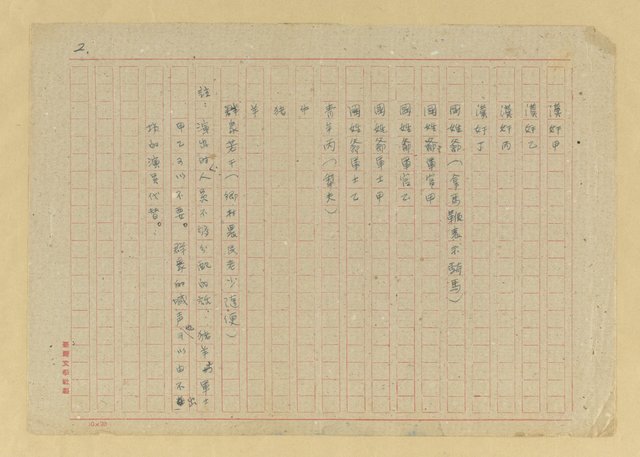 2.
漢奸甲
漢奸乙
漢奸丙
漢奸丁
國姓爺(拿馬鞭表示騎馬)
國姓爺軍官甲
國姓爺軍官乙
國姓爺軍士甲
國姓爺軍士乙
青年丙(樂夫)
牛
豬
羊
群眾若干(鄉村農民老少隨便)
註:演出的人員不夠分配的話,豬羊與軍士
甲乙可以不要。群眾的喊声也可以由不出
場的演員代替。
臺灣文學社製
10×20